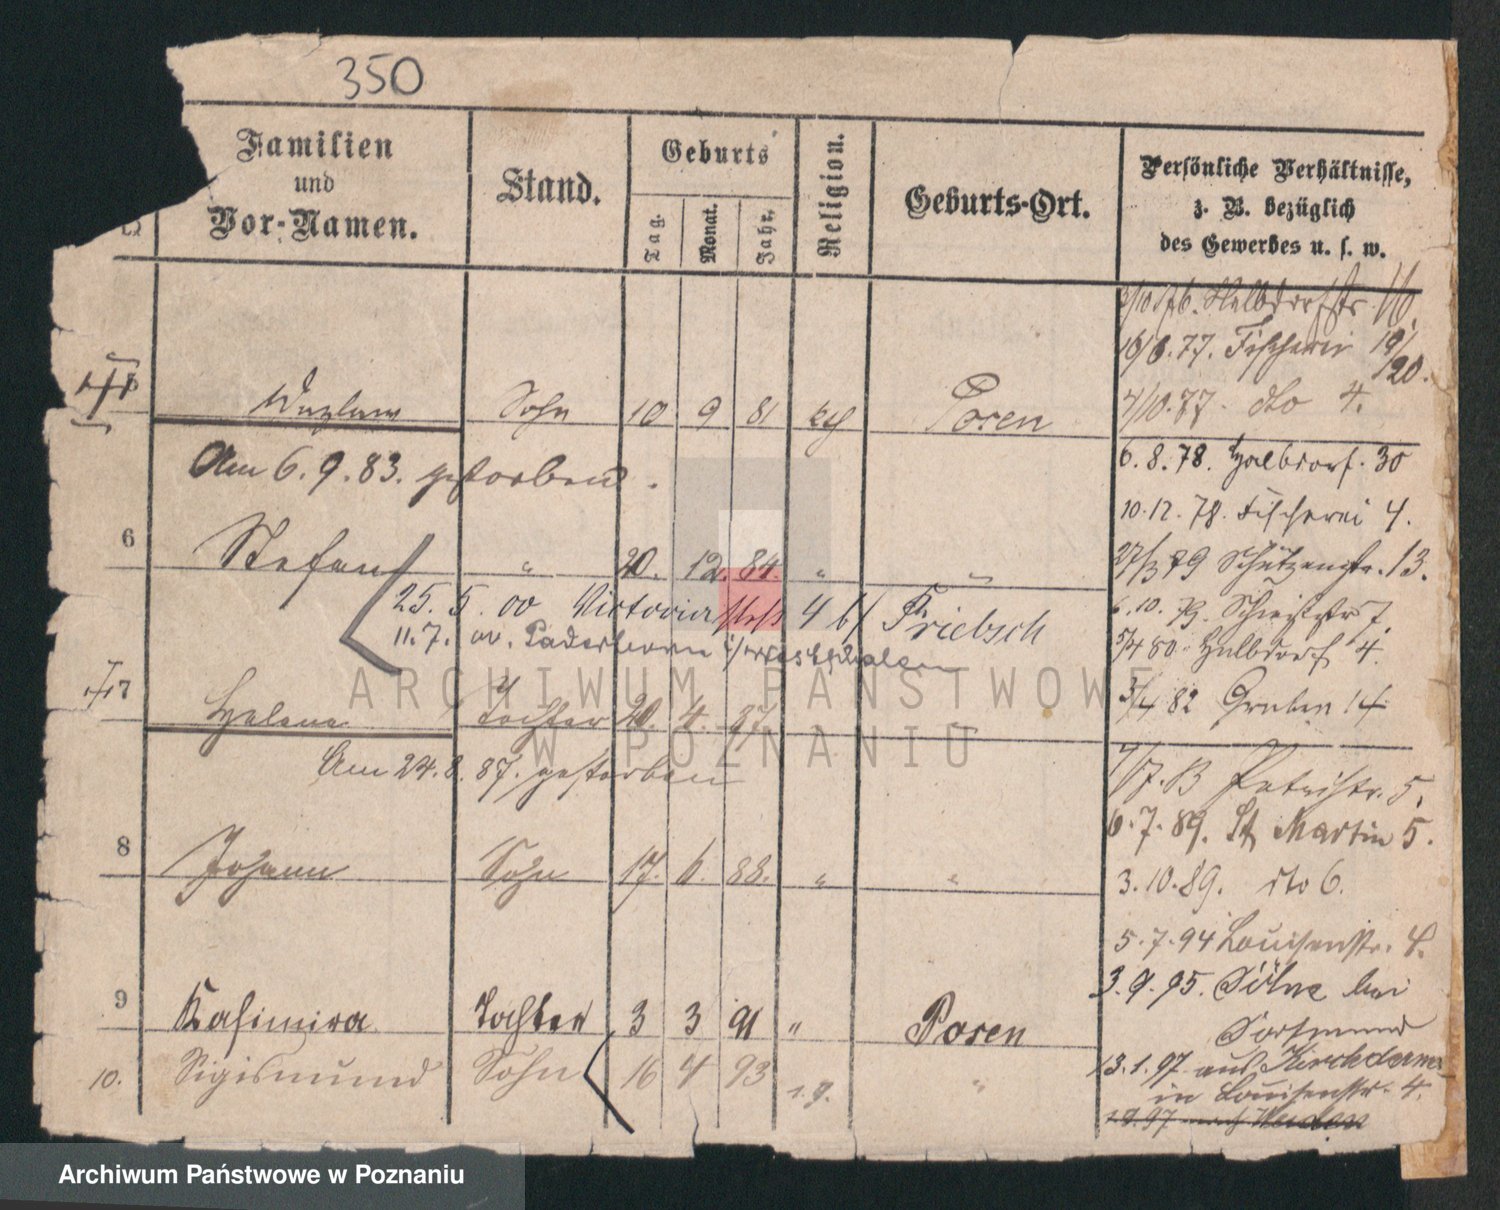 350
Familien
und
Vor-Namen.
Stand.
Geburts
Tag.
Monat.
Jahr.
Religion.
Geburts-Ort.
Persönliche Verhältnisse,
z. B. bezüglich
des Gewerbes u. s. w.
Sohn 10 9 81 kth Posen
Am 6. 9. 83. gestorben.
6 Stefan " 20. 12. 84. " "
25. 5. 00 Victoria 4 b/ Friebsch
11. 7. 00. Paderborn i/Westphalen
7 Helene Tochter 20. 4. 87.
Am 24. 8. 87. gestorben
8 Johann Sohn 17. 6. 88. " "
9 Kasimira Tochter 3 3 91 " Posen
10. Sigismund Sohn 16 4 93 "
16/6. 77. Fischerei 19/
120.
4/10. 77. dto 4.
6. 8. 78. Halbdorf. 30
10. 12. 78. Fischerei 4.
27/3 79 Schützenstr. 13.
6. 10. 79. 7.
5/4 80 Halbdorf 4.
3/4 82 Graben 14
Petristr. 5.
6. 7. 89. St Martin 5.
3. 10. 89. dto 6.
5. 7. 94 Louisenstr. 4.
3. 9. 95. bei
Dortmund
13. 1. 97 aus
in Louisenstr. 4.
97 nach
ARCHIWUM PAŃSTWOWE
W POZNANIU
Archiwum Państwowe w Poznaniu